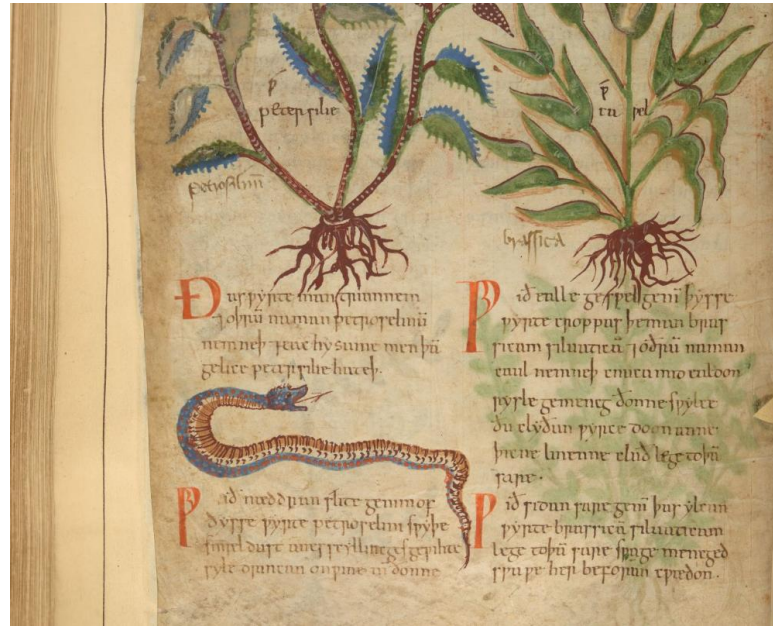 petersilie
petrosilinū
Ðas ƿyrte man triannem
⁊ oþrū naman petroselinū
nemneþ ⁊ eac hy sume men þā
gelice petersilie hateþ.
Ƿið næddran slite genim of
ðysse ƿyrte petroselini sƿyþe
smæl dust anes scyllinges geƿihte
syle drincan on ƿine nī ðonne
brassica
Ƿið ealle gesƿel genī þysse
ƿyrte croppas þe man bras
sicam siluaticā ⁊ oðrū naman
caul nemneþ cnuca mid ealdon
rysle gemeng ðonne sƿylce
ðu clyðan ƿyrce do on anne
þicne linenne clað lege to þā
sare.
Ƿið sidan sare genī þas ylcan
ƿyrte brassicā siluaticam
lege to þā sare sƿa gemenged
sƿa ƿe her beforan cƿædon.